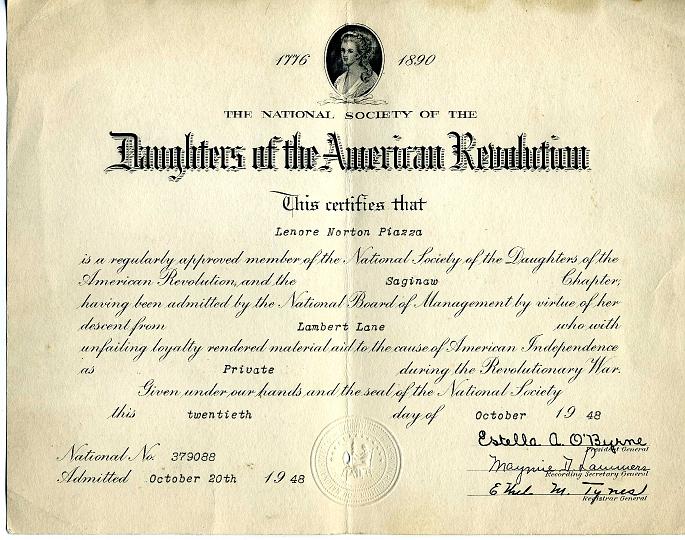 1776 1890
THE NATIONAL SOCIETY OF THE
Daughters of the American Revolution
This certifies that
Lenore Norton Piazza
is a regularly approved member of the National Society of the Daughters of the
American Revolution, and the Saginaw Chapter,
having been admitted by the National Board of Management by virtue of her
descent from Lambert Lane who with
unfailing loyalty rendered material aid to the cause of American Independence
as Private during the Revolutionary War.
Given under our hands and the seal of the National Society
this twentieth day of October 1948
Estella A. O'Byrne
President General
National No. 379088
Maymie D. Lammers
Recording Secretary General
Admitted October 20th 1948
Ethel M. Tynes
Registrar General